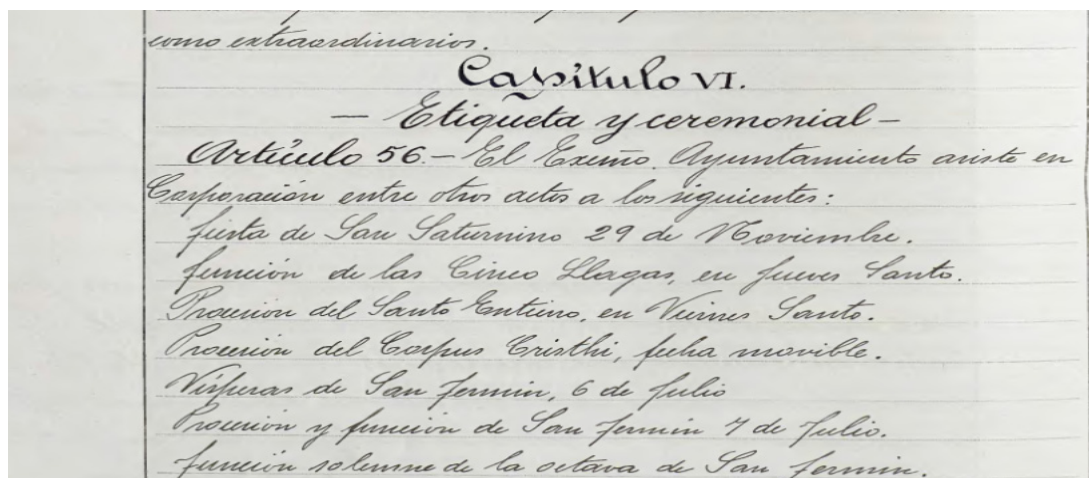 como extraordinarios.
Capítulo VI.
— Etiqueta y ceremonial —
Artículo 56.— El Excmo. Ayuntamiento asiste en
Corporación entre otros actos a los siguientes:
fiesta de San Saturnino 29 de Noviembre.
función de las Cinco Llagas, en Jueves Santo.
Procesión del Santo Entierro, en Viernes Santo.
Procesión del Corpus Cristhi, fecha movible.
Vísperas de San Fermín, 6 de Julio
Procesión y función de San Fermín 7 de Julio.
función solemne de la octava de San Fermín.